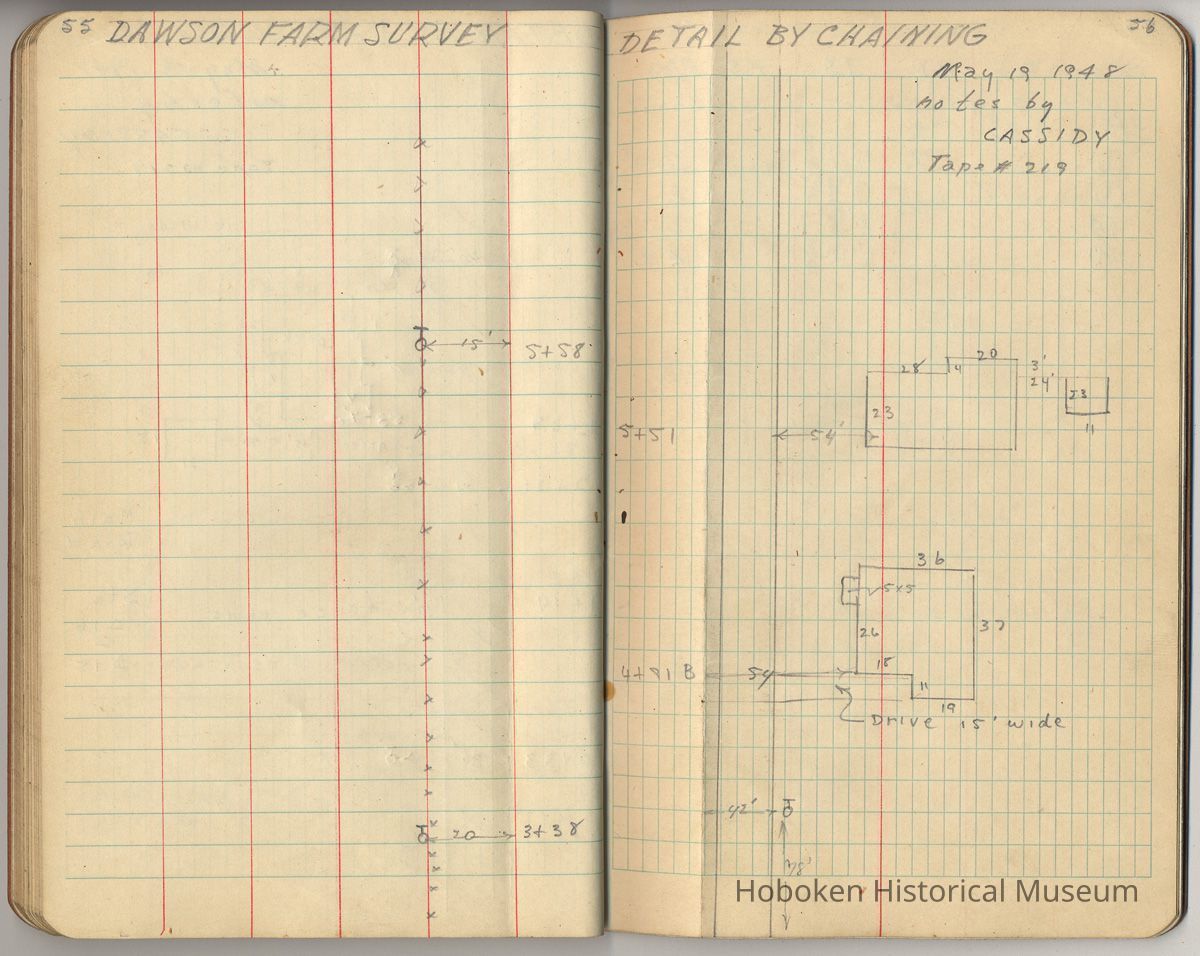 55 DAWSON FARM SURVEY
15'
5+58
20
3+38
DETAIL BY CHAINING
56
May 19 1948
notes by
CASSIDY
Tape # 219
28
4
20
3'
24'
23
23
11
5+51
54'
36
5x5
26
37
4+91 B
54
18
11
19
Drive 15' wide
42'
Hoboken Historical Museum